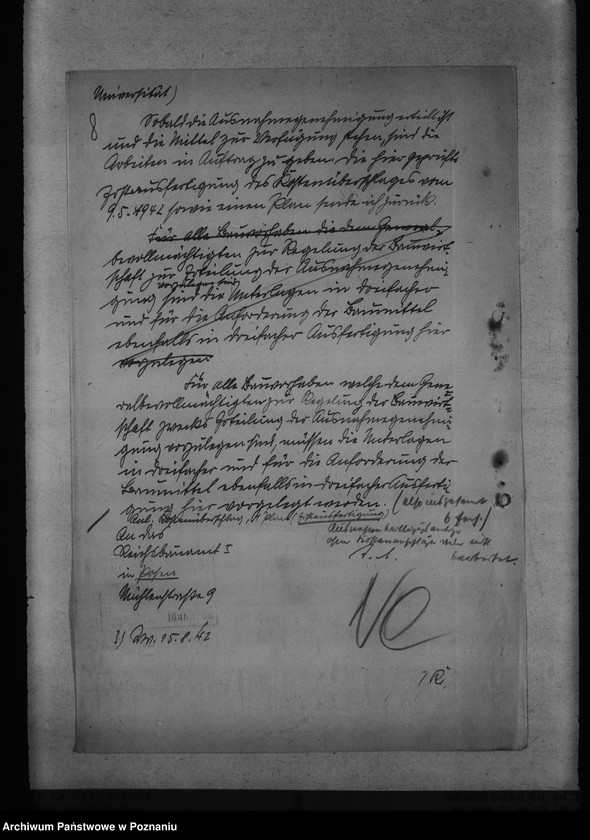 Universität)
8
Sobald die Ausnahmegenehmigung erteilt ist
und die Mittel zur Verfügung stehen, sind die
Arbeiten in Auftrag zu geben. Die hier geprüfte
Erstausfertigung des Kostenüberschlages vom
9.5.1942 sowie einen Plan sende ich zurück.
Für alle Bauvorhaben die dem General-
bevollmächtigten zur Regelung der Bauwirt-
schaft zur Erteilung der Ausnahmegenehmi-
vorzulegen sind
gung sind die Unterlagen in dreifacher
und für die Anforderung der Baumittel
ebenfalls in dreifacher Ausfertigung hier
vorzulegen
Für alle Bauvorhaben welche dem Gene-
ralbevollmächtigten zur Regelung der Bauwirt-
schaft zwecks Erteilung der Ausnahmegenehmi-
gung vorzulegen sind, müssen die Unterlagen
in dreifacher und für die Anforderung der
Baumittel ebenfalls in dreifacher Ausferti-
gung hier vorgelegt werden. (also insgesamt
6 fach)
Anl. Kostenüberschlag, 1 Plan, Erstausfertigung
An das
Reichsbauamt I
in Posen
Mühlenstraße 9
I. A.
bearbeitet.
3) Zw. 15.8.42
Archiwum Państwowe w Poznaniu